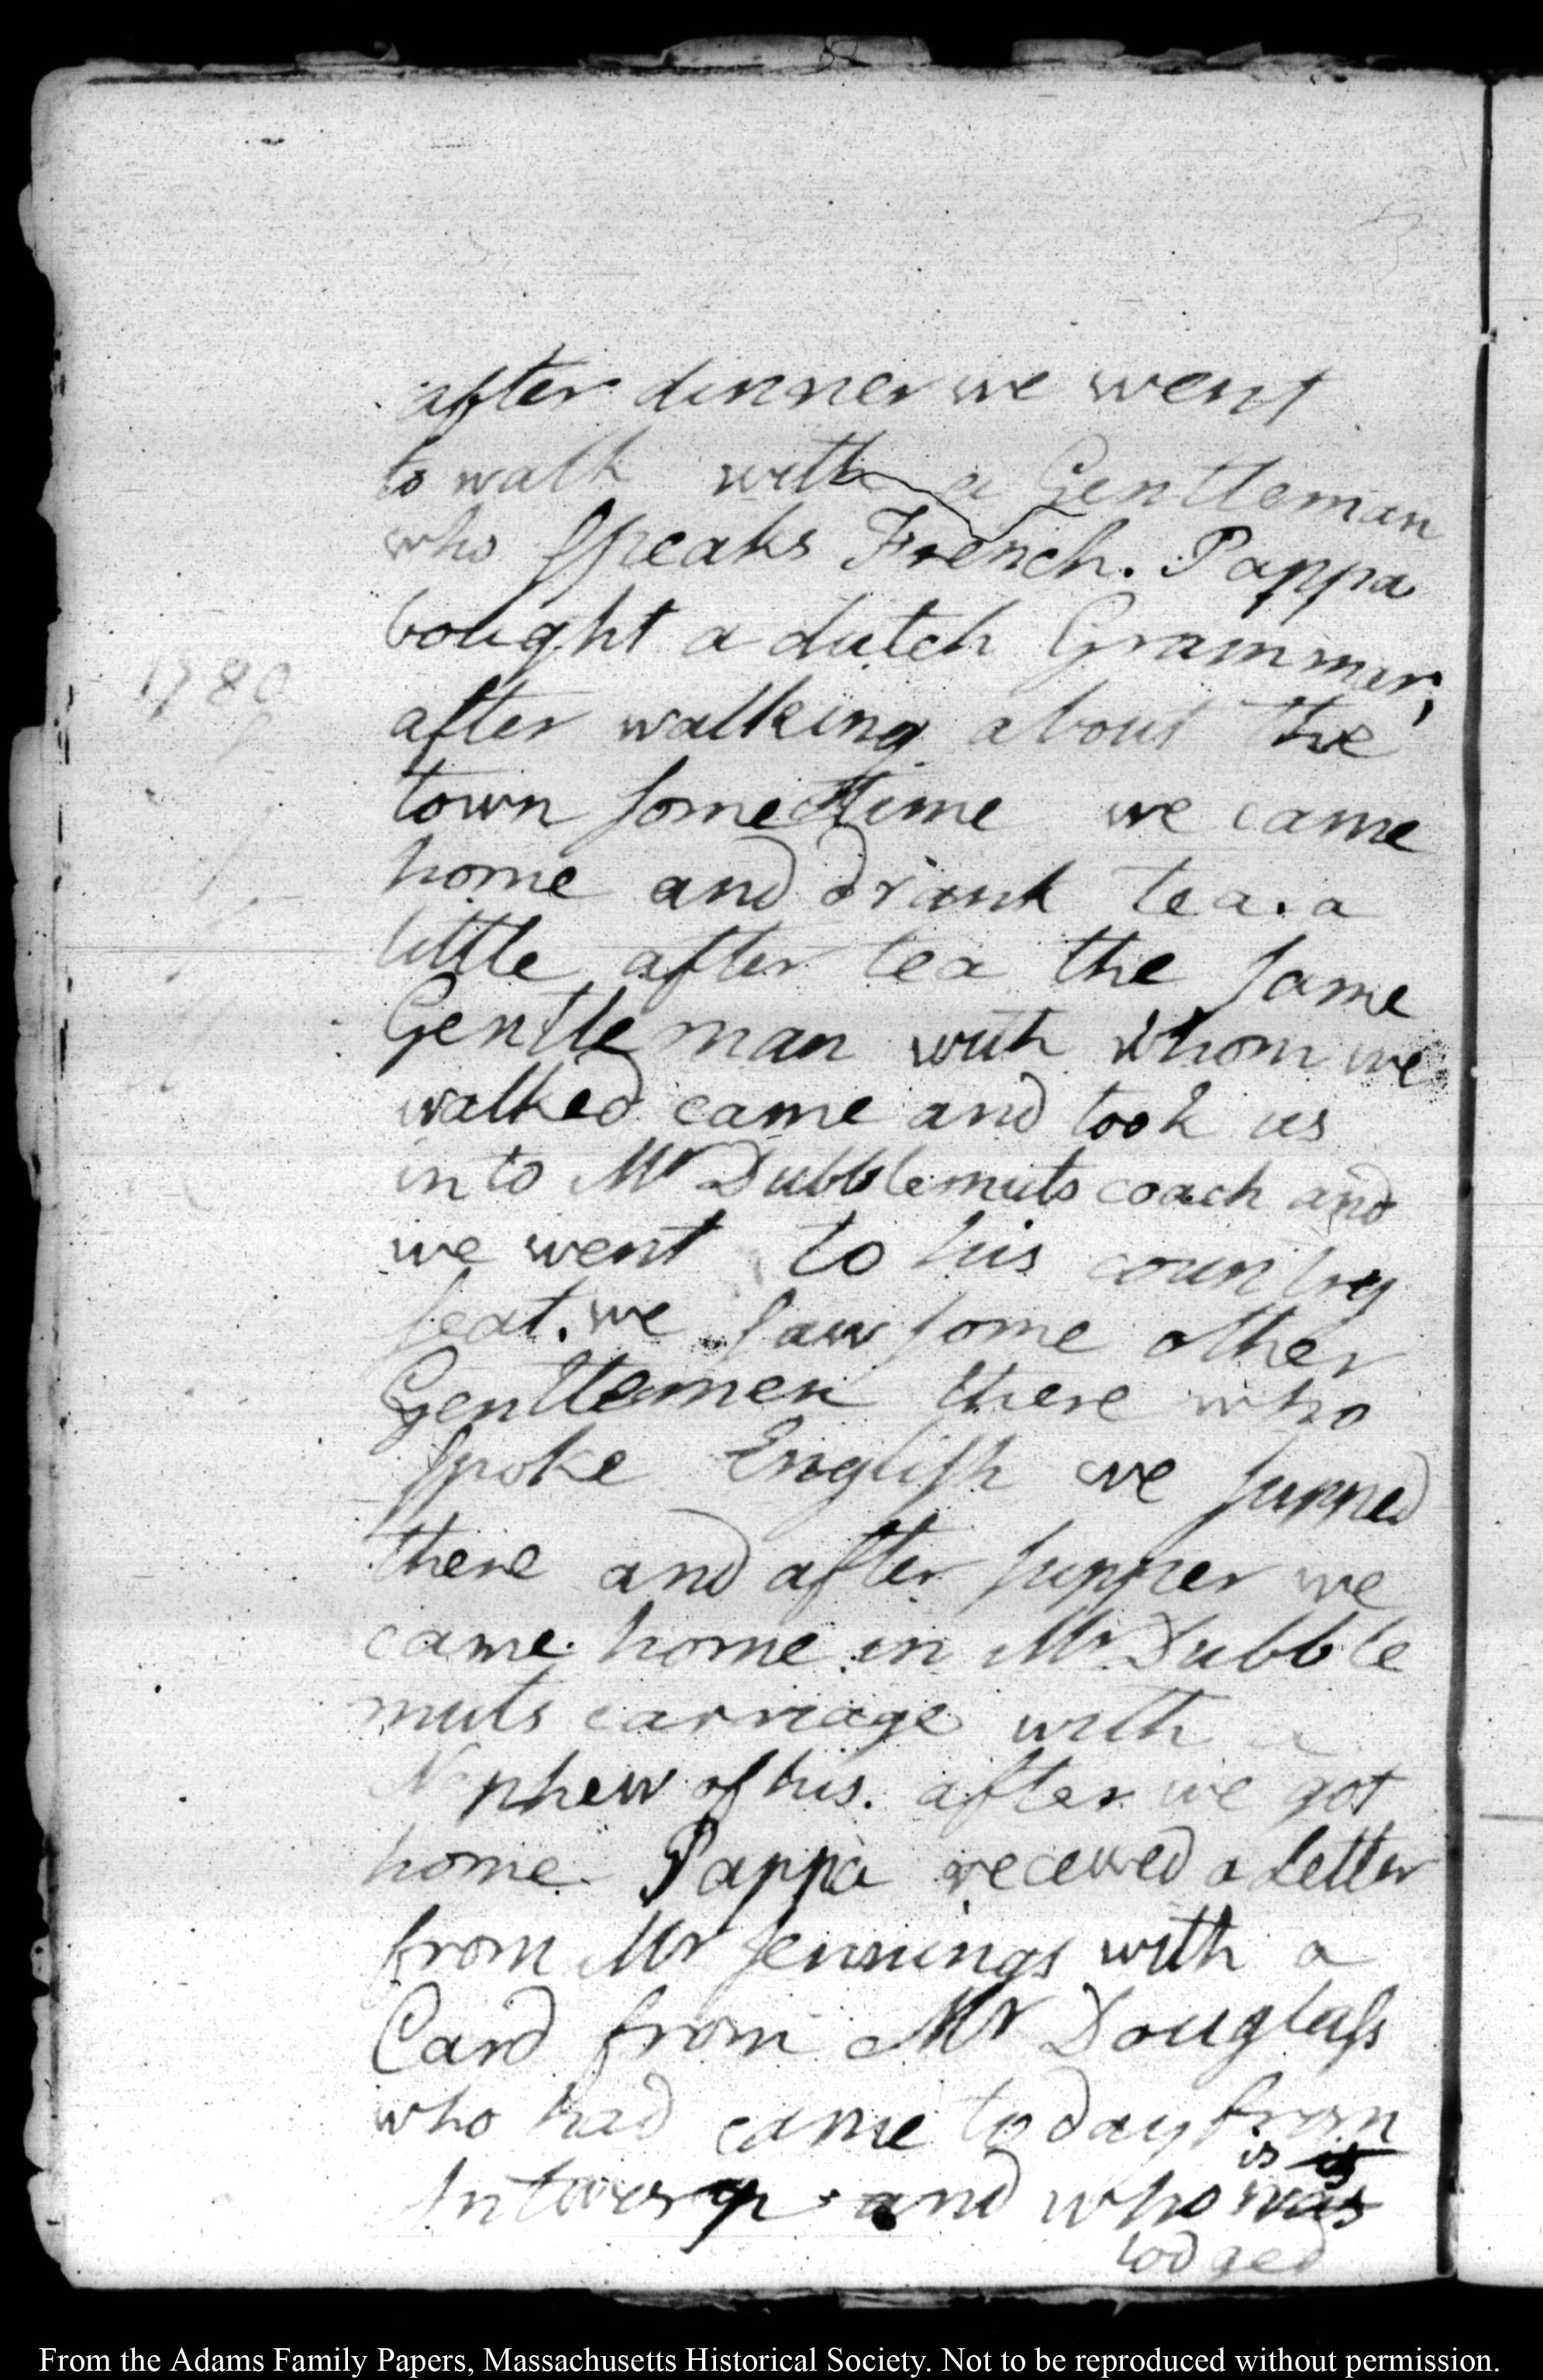 after dinner we went
to walk with a Gentleman
who speaks French. Pappa
bought a dutch Grammer;
1780
after walking about the
town some time we came
home and drank tea. a
little after tea the same
Gentleman with whom we
walked came and took us
into Mr Dubblemuts coach and
we went to his country
seat. we saw some other
Gentlemen there who
spoke English we supped
there and after supper we
came home in Mr Dubble
muts carriage with a
Nephew of his. after we got
home Pappa received a Letter
from Mr Jennings with a
Card from Mr Douglass
who had came to day from
is is
Antwerp and who was
lodged
From the Adams Family Papers, Massachusetts Historical Society. Not to be reproduced without permission.